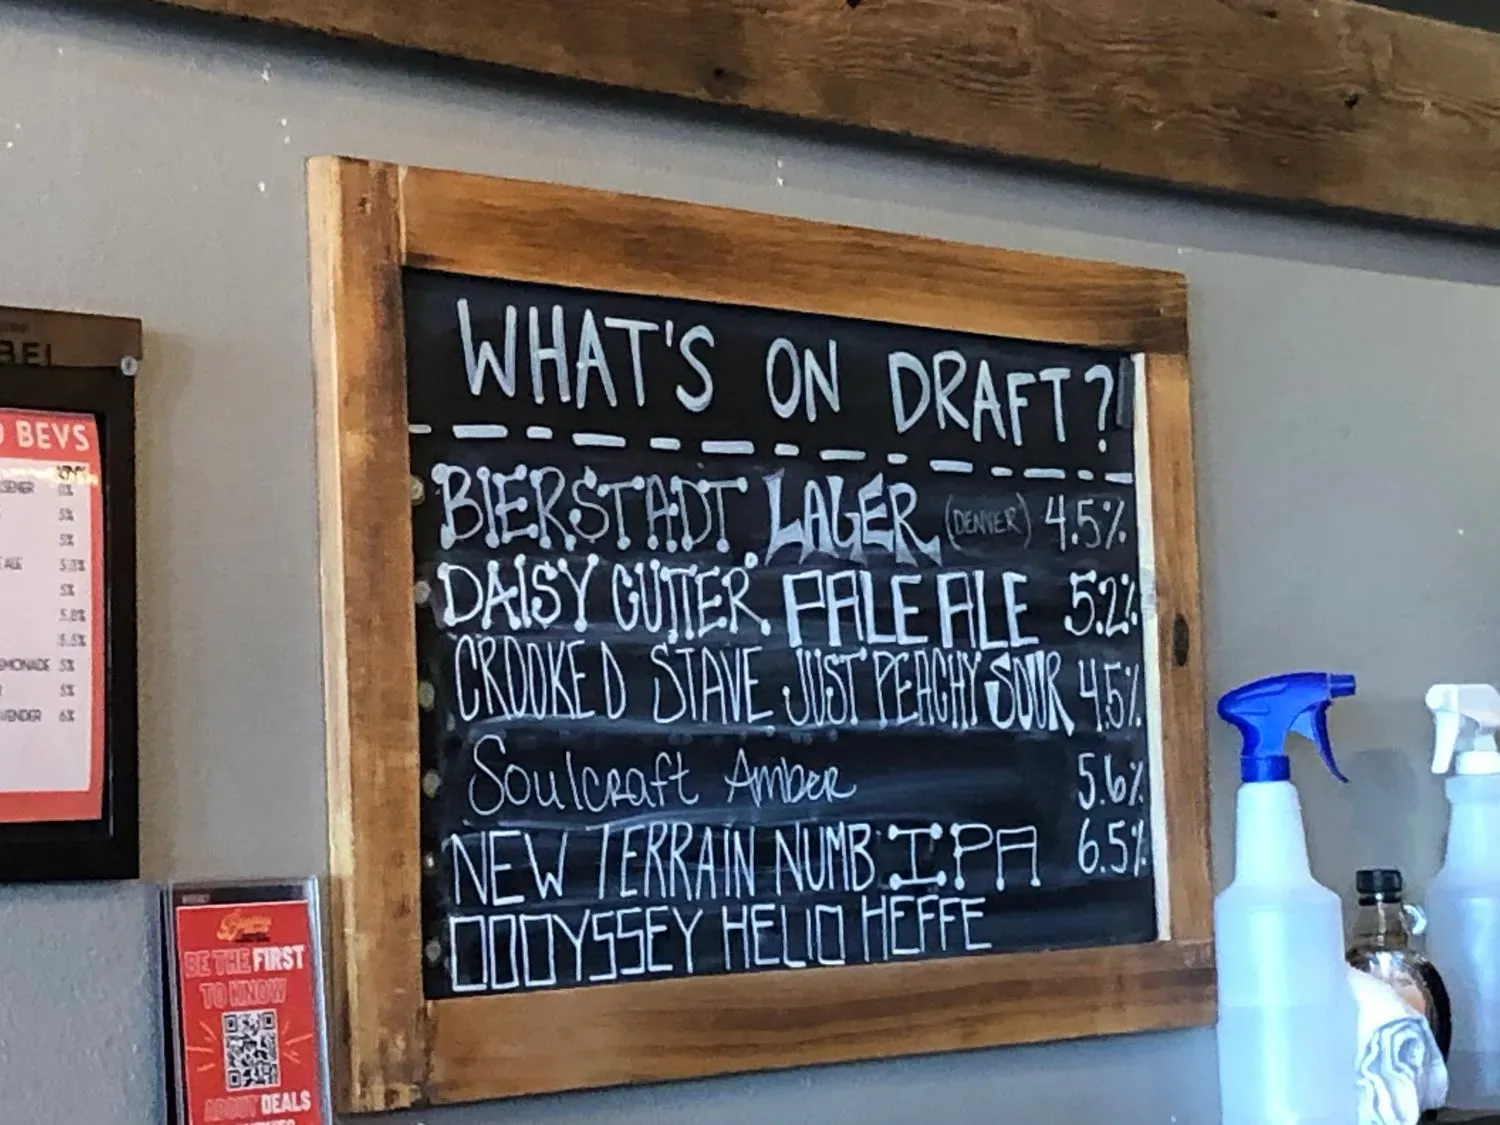 WHAT'S ON DRAFT?
BIERSTADT LAGER (DENVER) 4.5%
DAISY CUTTER PALE ALE 5.2%
CROOKED STAVE JUST PEACHY SOUR 4.5%
Soulcraft Amber 5.6%
NEW TERRAIN NUMB IPA 6.5%
ODDYSSEY HELIO HEFFE
BEVS
5%
5%
ALE
5%
5.8%
5.5%
EMONADE 5%
5%
VENDER 6%
BE THE FIRST
TO KNOW
ABOUT DEALS